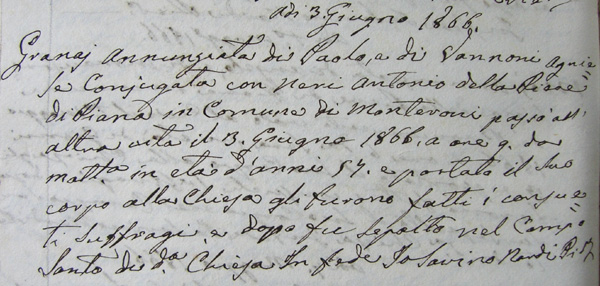 Adi 3. Giugno 1866.
Granaj Annunziata di Paolo, e di Vannoni Agnie=
se Conjugata con Neri Antonio della Pieve
di Piana in Comune di Monteroni passò all'
altra vita il 3. Giugno 1866. a ore 9. da
matt.a in età d'anni 57. e portato il suo
corpo alla Chiesa gli furono fatti i consue=
ti suffragi, e dopo fu sepolto nel Campo
Santo di d.a Chiesa In fede Io Savino Nardi